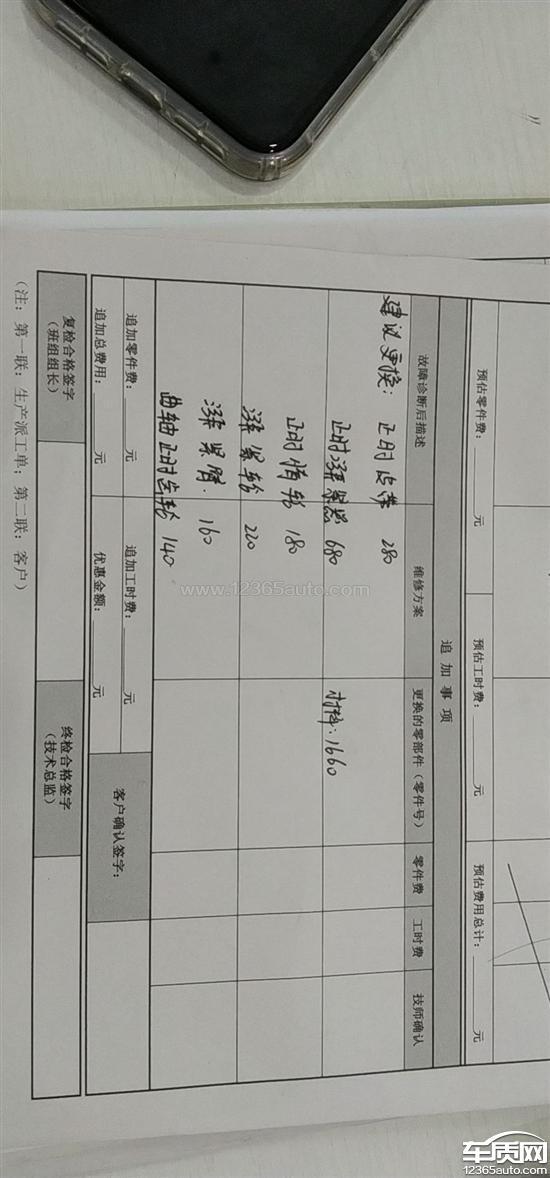 预估零件费：______元 预估工时费：______元 预估费用总计：______元
追加事项
故障诊断后描述 维修方案 更换的零部件（零件号） 零件费 工时费 技师确认
建议更换：正时皮带 280
正时涨紧器 680 材料：1660
正时惰轮 180
涨紧轮 220
涨紧臂. 160
曲轴正时齿轮 140
追加零件费：______元 追加工时费：______元 客户确认签字：
追加总费用：______元 优惠金额：______元
复检合格签字（班组组长） 终检合格签字（技术总监）
（注：第一联：生产派工单；第二联：客户）
www.12365auto.com
车质网
12365auto.com